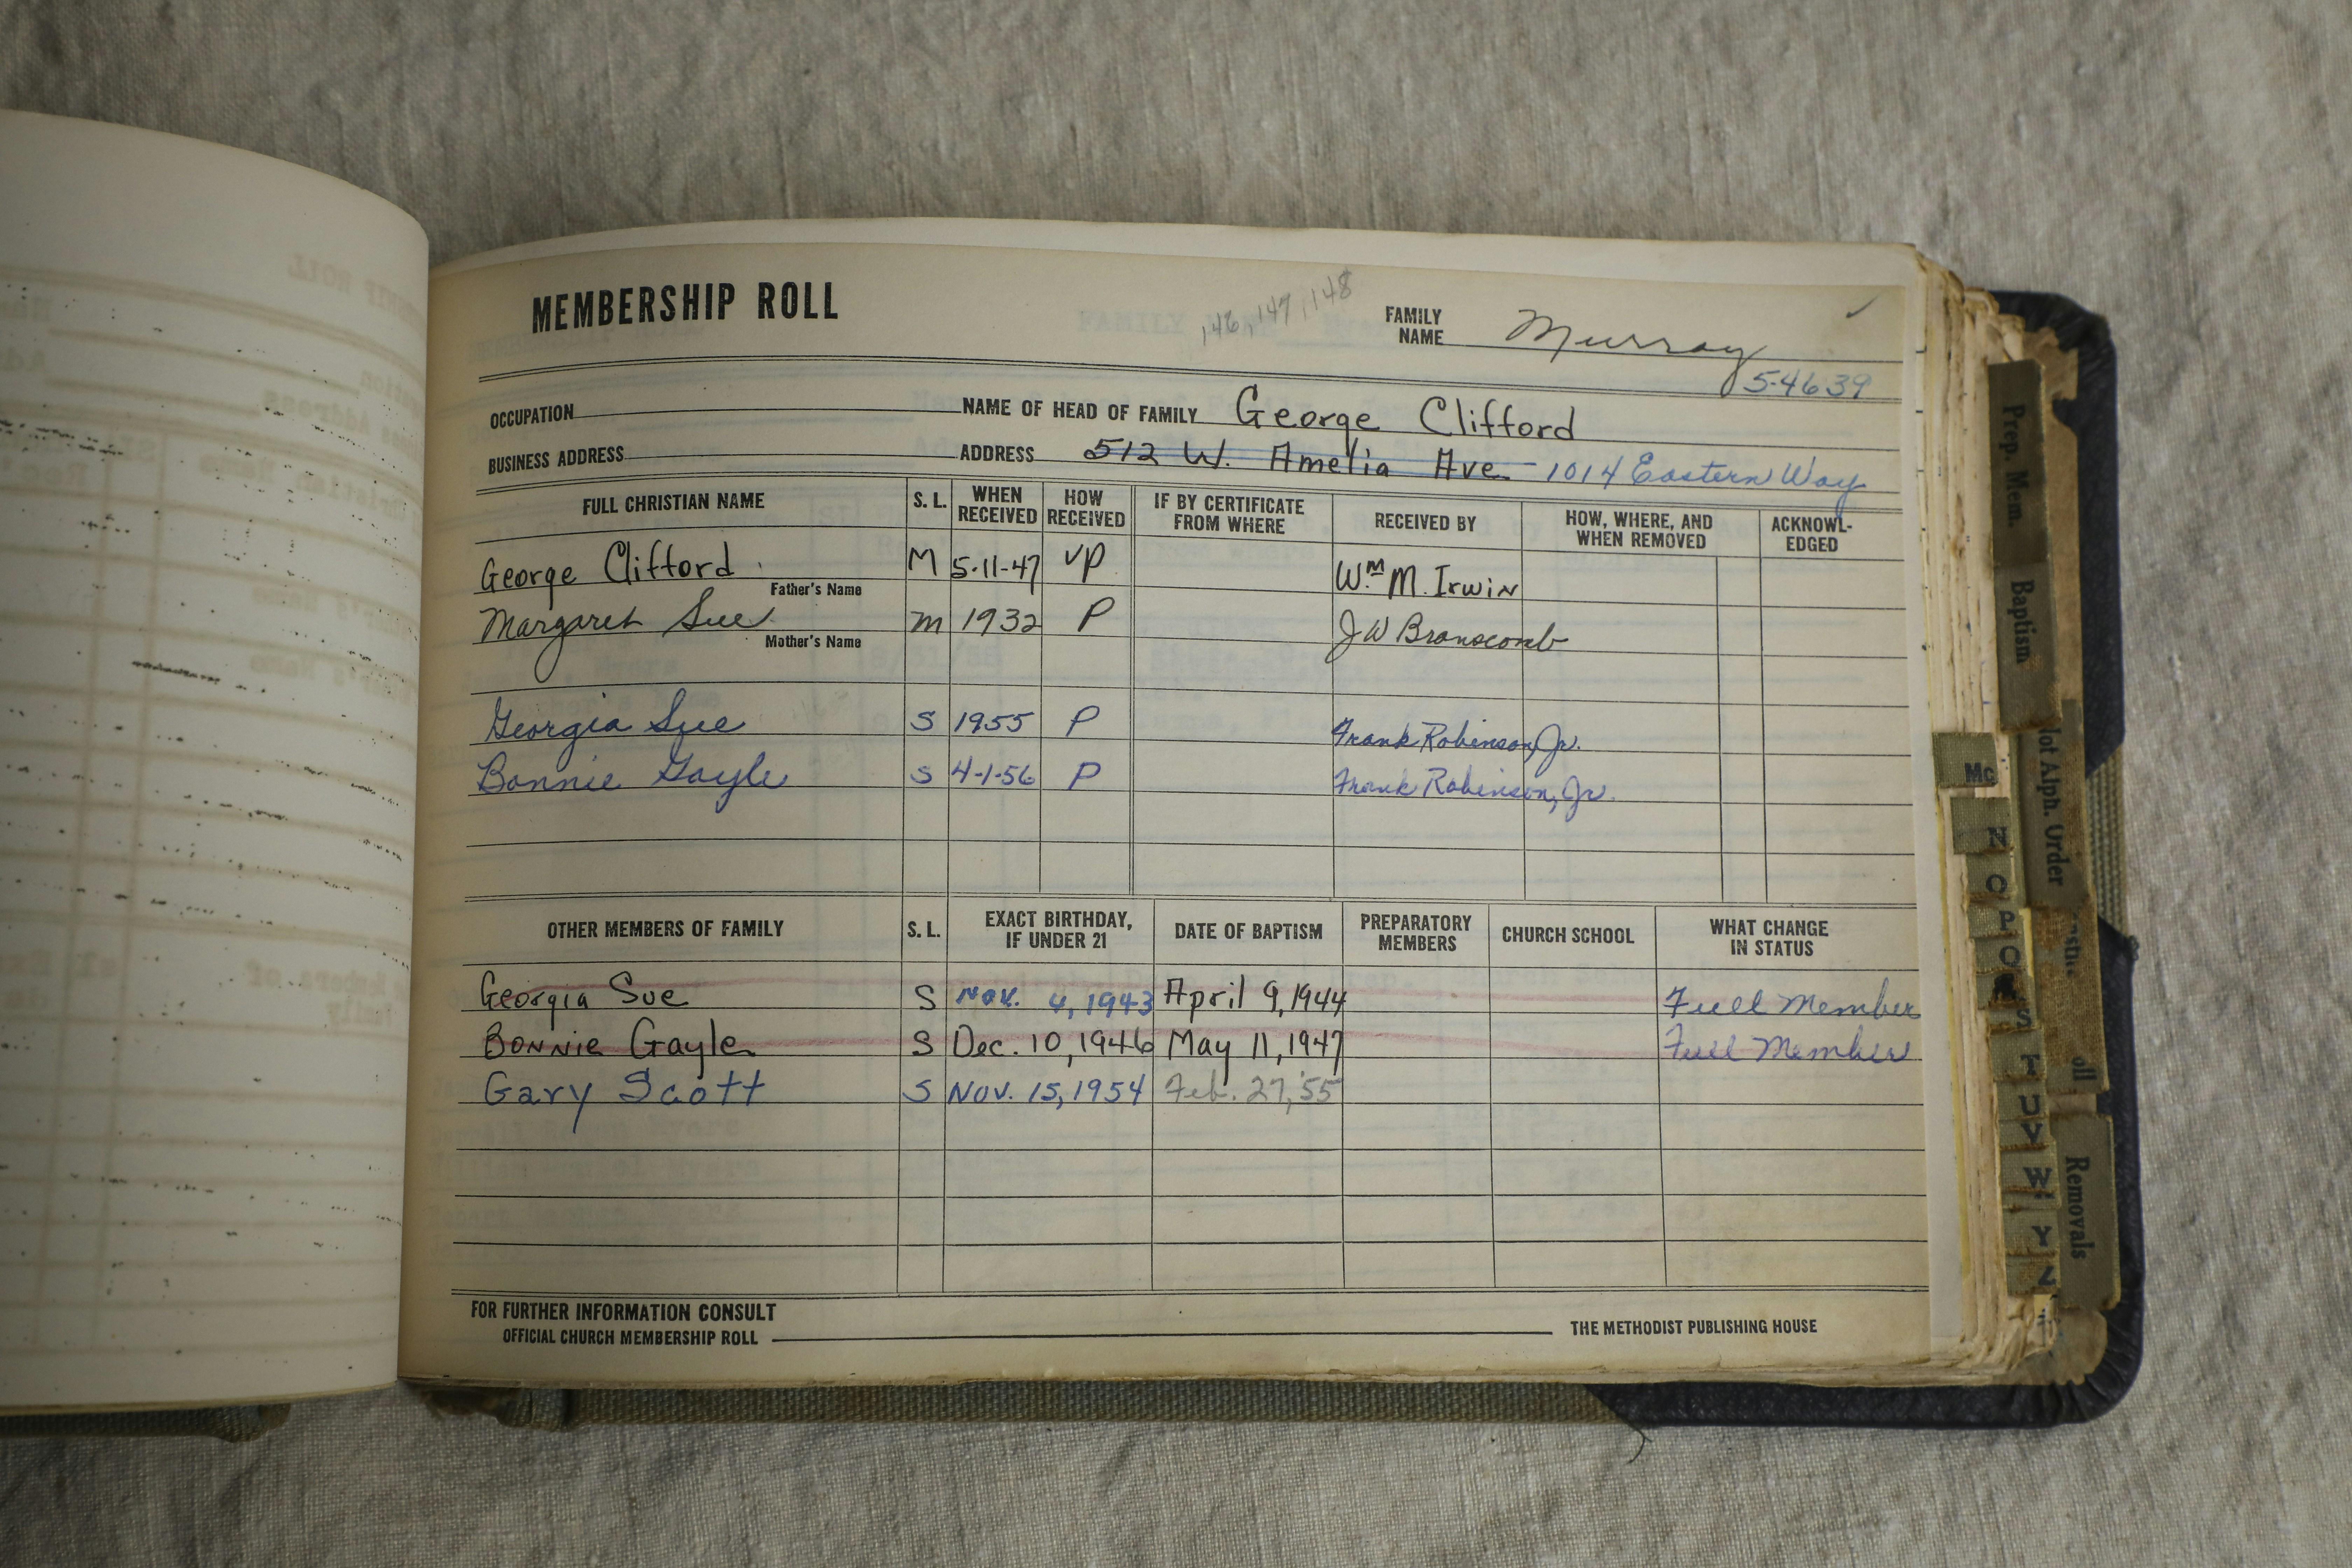 MEMBERSHIP ROLL
146, 147, 148
FAMILY NAME Murray
5-4639
OCCUPATION NAME OF HEAD OF FAMILY George Clifford
BUSINESS ADDRESS ADDRESS 512 W. Amelia Ave 1014 Eastern Way
FULL CHRISTIAN NAME S. L. WHEN RECEIVED HOW RECEIVED IF BY CERTIFICATE FROM WHERE RECEIVED BY HOW, WHERE, AND WHEN REMOVED ACKNOWL-EDGED
George Clifford M 5-11-47 VP Wm M. Irwin
Father's Name
Margaret Sue M 1932 P J W Branscomb
Mother's Name
Georgia Sue S 1955 P Frank Robinson, Jr.
Bonnie Gayle S 4-1-56 P Frank Robinson, Jr.
OTHER MEMBERS OF FAMILY S. L. EXACT BIRTHDAY, IF UNDER 21 DATE OF BAPTISM PREPARATORY MEMBERS CHURCH SCHOOL WHAT CHANGE IN STATUS
Georgia Sue S Nov. 4, 1943 April 9, 1944 Full Member
Bonnie Gayle S Dec. 10, 1946 May 11, 1947 Full Member
Gary Scott S Nov. 15, 1954 Feb. 27, '55
FOR FURTHER INFORMATION CONSULT
OFFICIAL CHURCH MEMBERSHIP ROLL THE METHODIST PUBLISHING HOUSE
Prep. Mem.
Baptism
Alph. Order
Removals
Mc
N
O
P
Q
S
T
U
V
W
Y
Z